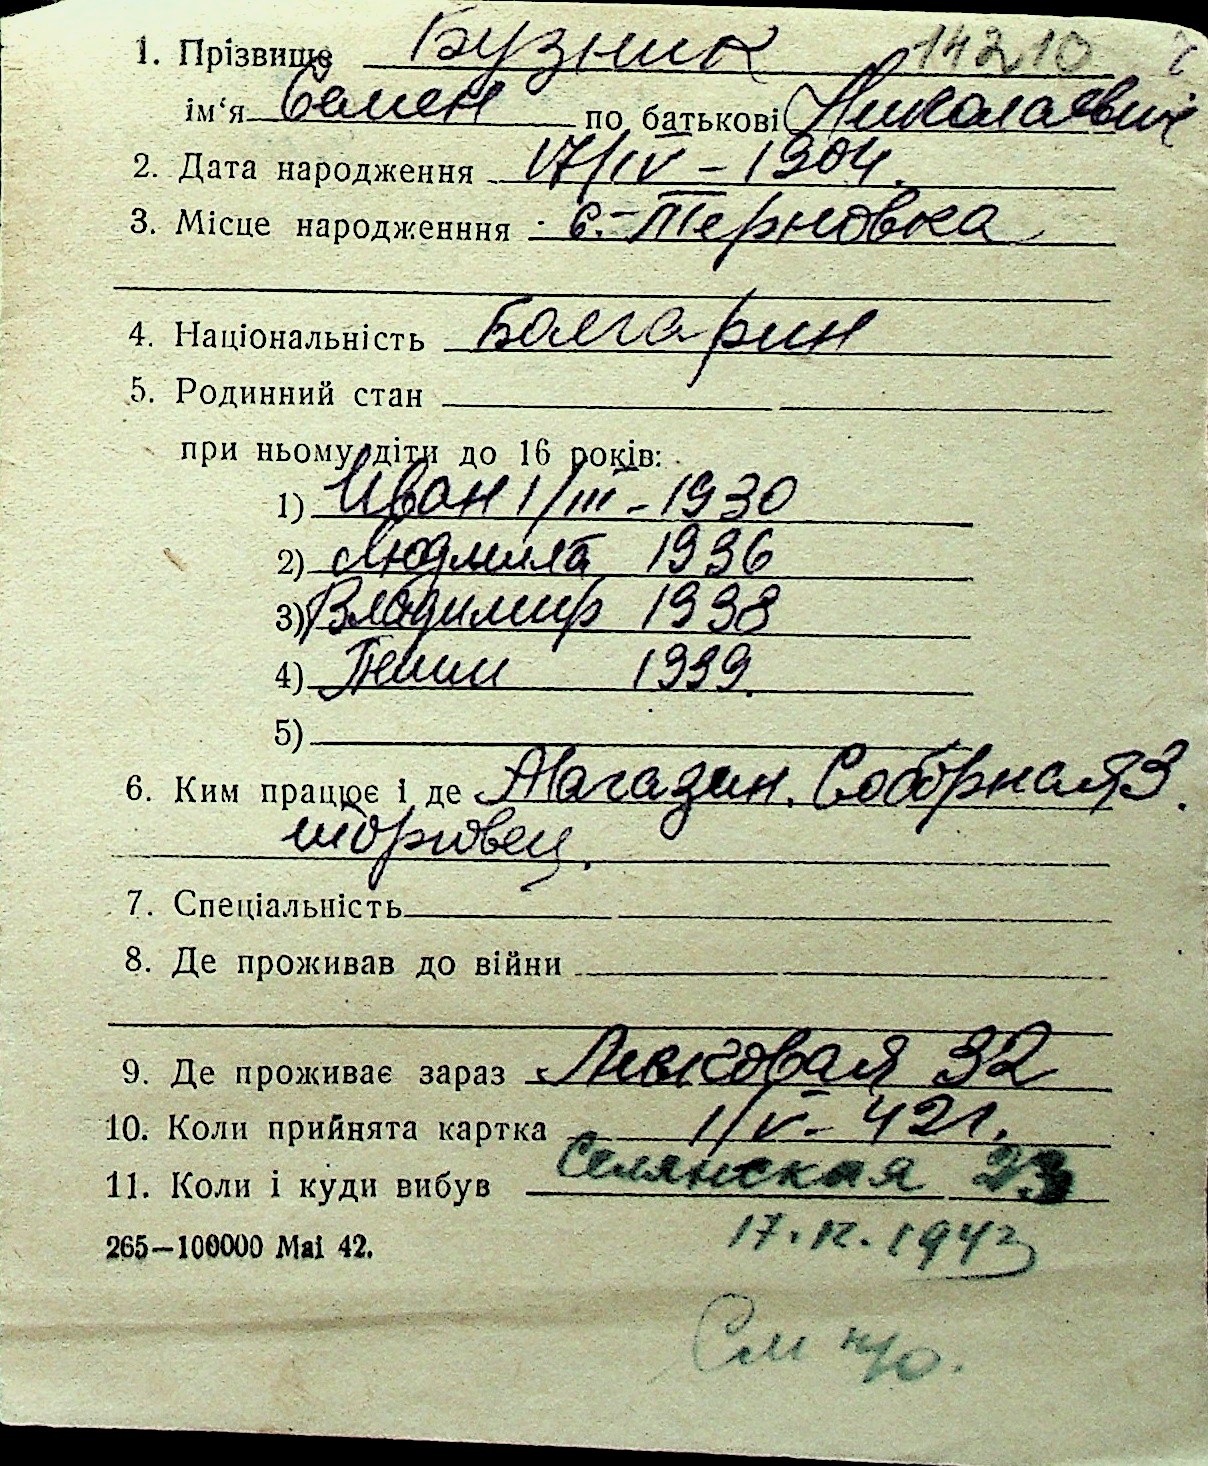 1. Прізвище Бузник 14210
ім'я Семен по батькові Николаевич
2. Дата народження 17/IV – 1904.
3. Місце народженння с. Терновка
4. Національність Болгарин
5. Родинний стан
при ньому діти до 16 років:
1) Иван 1/III – 1930
2) Людмила 1936
3) Владимир 1938
4) 1939.
5)
6. Ким працює і де Магазин. Соборная 3.
торговец.
7. Спеціальність
8. Де проживав до війни
9. Де проживає зараз 32
10. Коли прийнята картка 1/V – 42 г.
11. Коли і куди вибув Селянская 23
17.12.1942
265—100000 Маі 42.
См н/о.